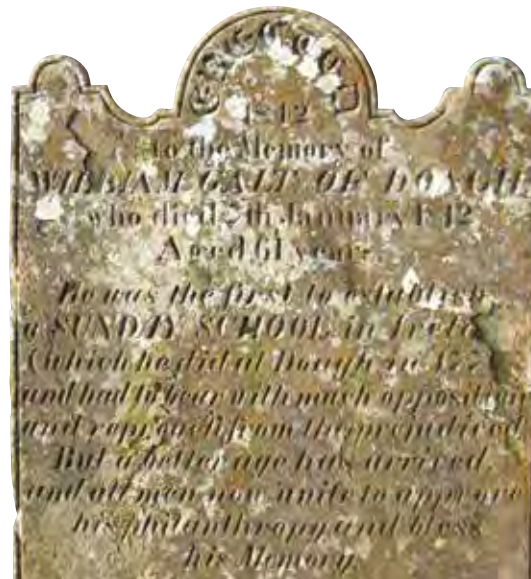 ERECTED
1842
to the Memory of
WILLIAM GALT OF DOAGH
who died 7th January 1812
Aged 61 years.
He was the first to establish
a SUNDAY SCHOOL in Irela
(which he did at Doagh in 177
and had to bear with much opposition
and reproach from the prejudiced
But a better age has arrived
and all men now unite to approve
his philanthropy and bless
his Memory.